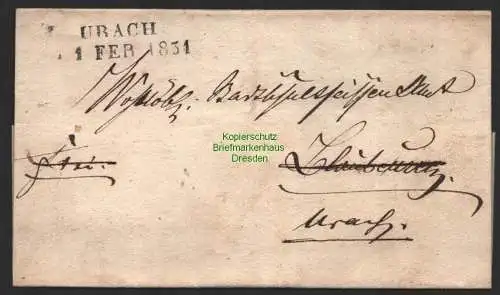 URACH
1 FEB 1831
Wohllöbl. Stadtschultheissen Amt
Kopierschutz
Briefmarkenhaus
Dresden
frei.
Blaubeuren.
Urach.